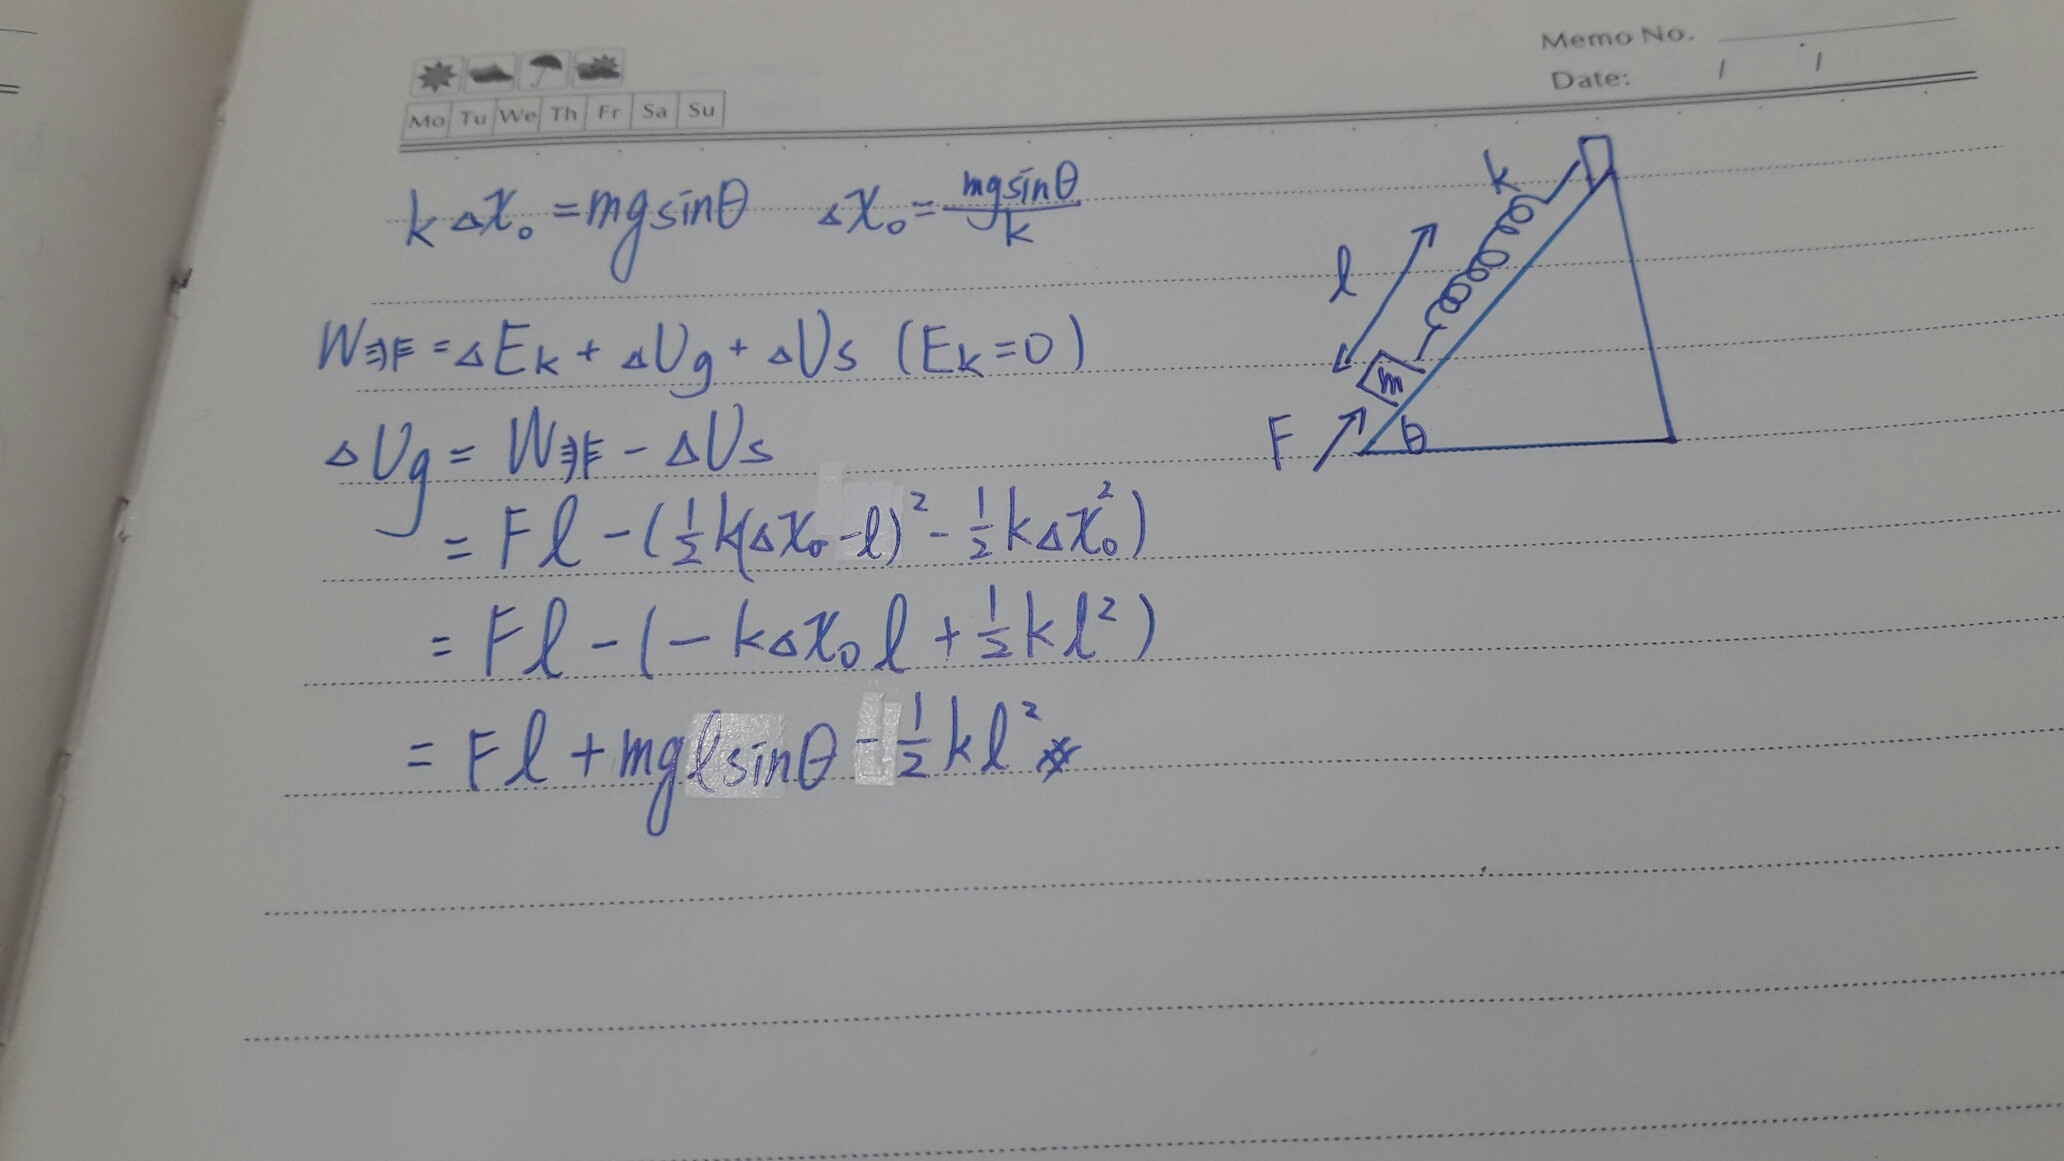 Memo No.
Date: / /
Mo Tu We Th Fr Sa Su
kΔx₀ = mgsinθ Δx₀ = mgsinθ/k
W非F = ΔEk + ΔUg + ΔUs (Ek=0)
ΔUg = W非F - ΔUs
= Fl - (½k(Δx₀-l)² - ½kΔx₀²)
= Fl - (-kΔx₀l + ½kl²)
= Fl + mglsinθ - ½kl²
k
l
m
F
θ